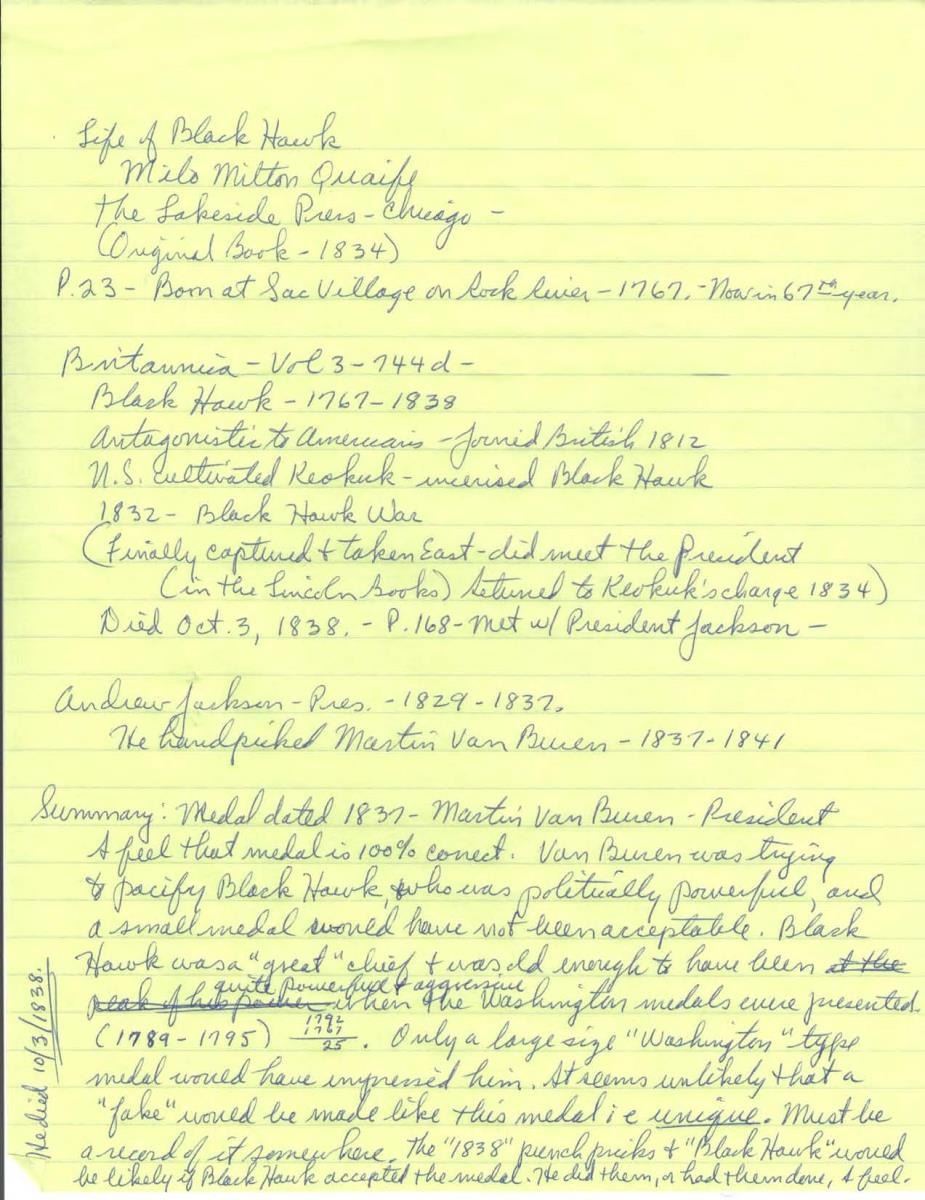 Life of Black Hawk
Milo Milton Quaife
The Lakeside Press - Chicago -
(Original Book - 1834)
P.23 - Born at Sac Village on Rock River - 1767. - Now in 67th year.
Britannica - Vol 3 - 744d -
Black Hawk - 1767 - 1838
Antagonistic to Americans - joined British 1812
U.S. cultivated Keokuk - incensed Black Hawk
1832 - Black Hawk War
(Finally captured & taken East - did meet the President
(in the Lincoln Books) Returned to Keokuk's charge 1834)
Died Oct. 3, 1838. - P.168 - Met w/ President Jackson -
Andrew Jackson - Pres. - 1829 - 1837.
He handpicked Martin Van Buren - 1837 - 1841
Summary: Medal dated 1837 - Martin Van Buren - President
I feel that medal is 100% correct. Van Buren was trying
to pacify Black Hawk, who was politically powerful, and
a small medal would have not been acceptable. Black
Hawk was a "great" chief & was old enough to have been at the
quite powerful & aggressive
peak of his power when the Washington medals were presented.
(1789 - 1795) 1792 1767 25 . Only a large size "Washington" type
medal would have impressed him. It seems unlikely that a
"fake" would be made like this medal i e unique. Must be
a record of it somewhere. The "1838" punch pricks & "Black Hawk" would
be likely if Black Hawk accepted the medal. He did them, or had them done, I feel.
He died 10/3/1838.